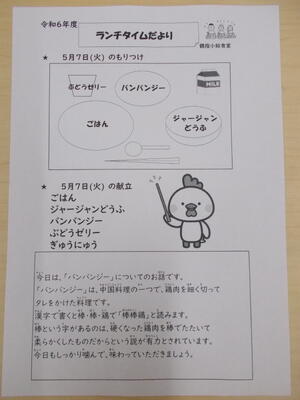 令和6年度
ランチタイムだより
鶴指小給食室
★ 5月7日(火) のもりつけ
ぶどうゼリー
バンバンジー
MILK
ごはん
ジャージャン
どうふ
★ 5月7日(火) の献立
ごはん
ジャージャンどうふ
バンバンジー
ぶどうゼリー
ぎゅうにゅう
今日は、「バンバンジー」についてのお話です。
「バンバンジー」は、中国料理の一つで、鶏肉を細く切って
タレをかけた料理です。
漢字で書くと棒・棒・鶏で「棒棒鶏」と読みます。
棒という字があるのは、硬くなった鶏肉を棒でたたいて
柔らかくしたものだからという説が有力とされています。
今日もしっかり噛んで、味わっていただきましょう。